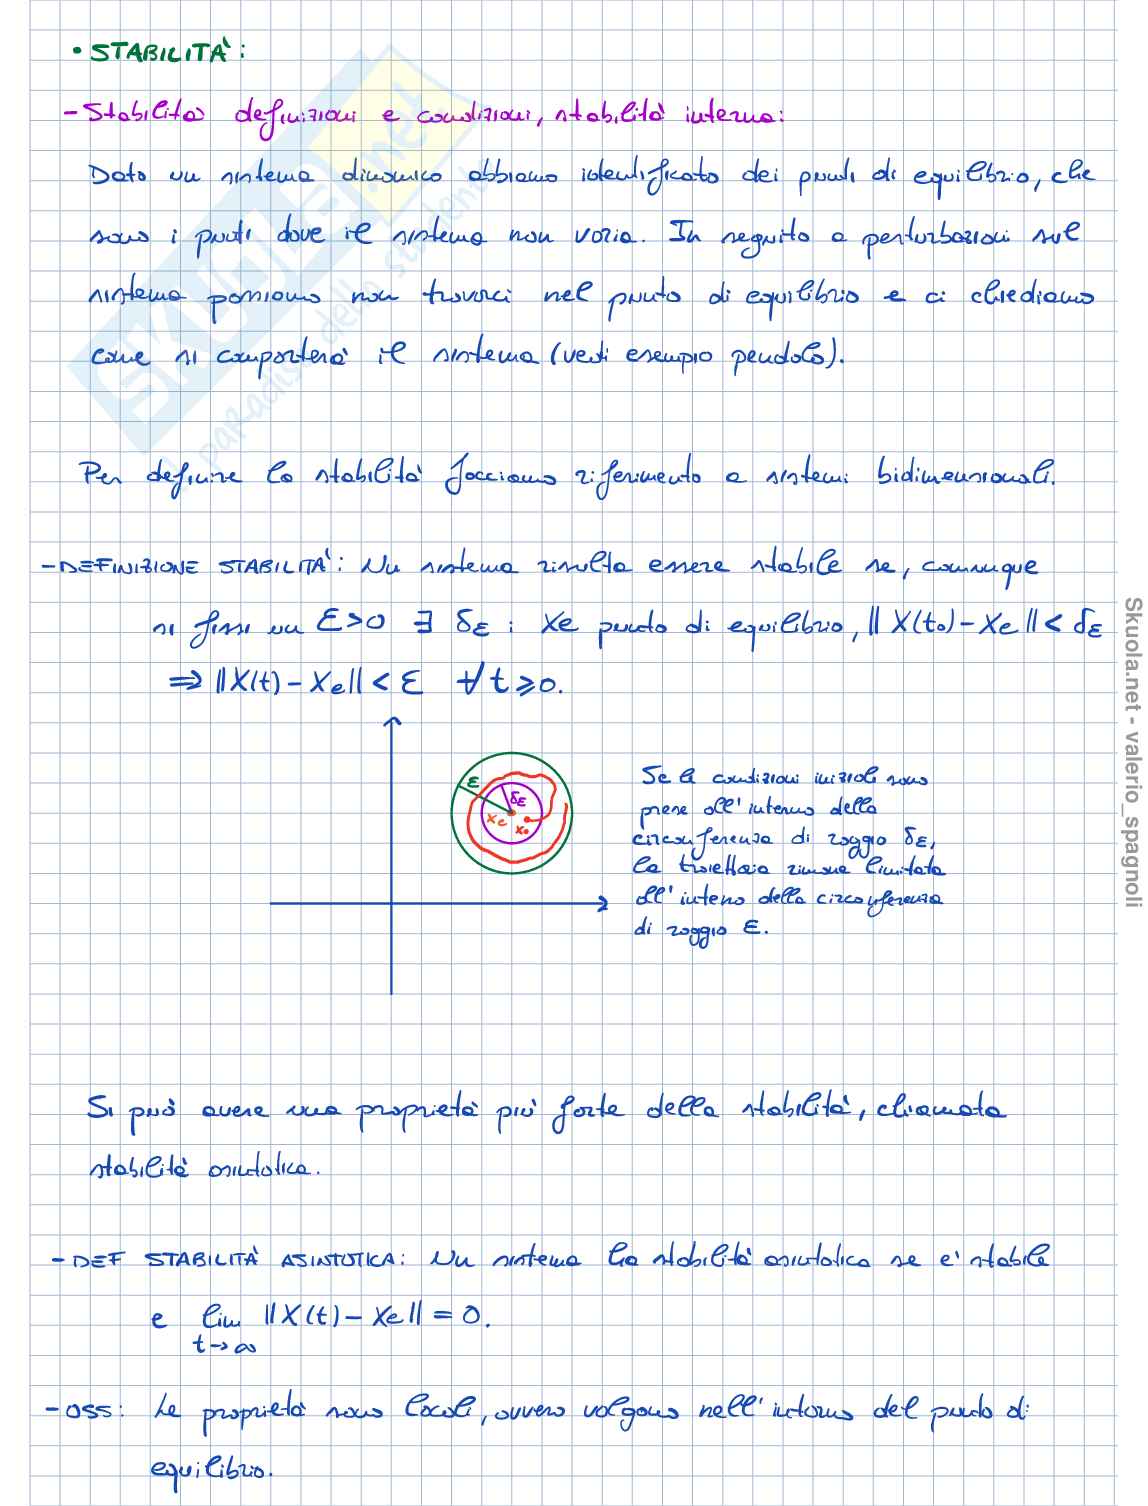 • STABILITÀ:
- Stabilità definizioni e condizioni, stabilità interna:
Dato un sistema dinamico abbiamo identificato dei punti di equilibrio, che
sono i punti dove il sistema non varia. In seguito a perturbazioni sul
sistema possiamo non trovarci nel punto di equilibrio e ci chiediamo
come si comporterà il sistema (vedi esempio pendolo).
Per definire la stabilità facciamo riferimento a sistemi bidimensionali.
- DEFINIZIONE STABILITÀ: Un sistema risulta essere stabile se, comunque
si fissi un ε>0 ∃ δε : Xe punto di equilibrio, ||X(t₀) - Xe|| < δε
⇒ ||X(t) - Xe|| < ε ∀t ⩾ 0.
ε
δε
Xe
X₀
Se le condizioni iniziali sono
prese all'interno della
circonferenza di raggio δε,
la traiettoria rimane limitata
all'interno della circonferenza
di raggio ε.
Si può avere una proprietà più forte della stabilità, chiamata
stabilità asintotica.
- DEF STABILITÀ ASINTOTICA: Un sistema ha stabilità asintotica se e' stabile
e lim ||X(t) - Xe|| = 0.
t→∞
- OSS: Le proprietà sono locali, ovvero valgono nell'intorno del punto di
equilibrio.
SKUOLA.net
il paradiso dello studente
Skuola.net - valerio_spagnoli